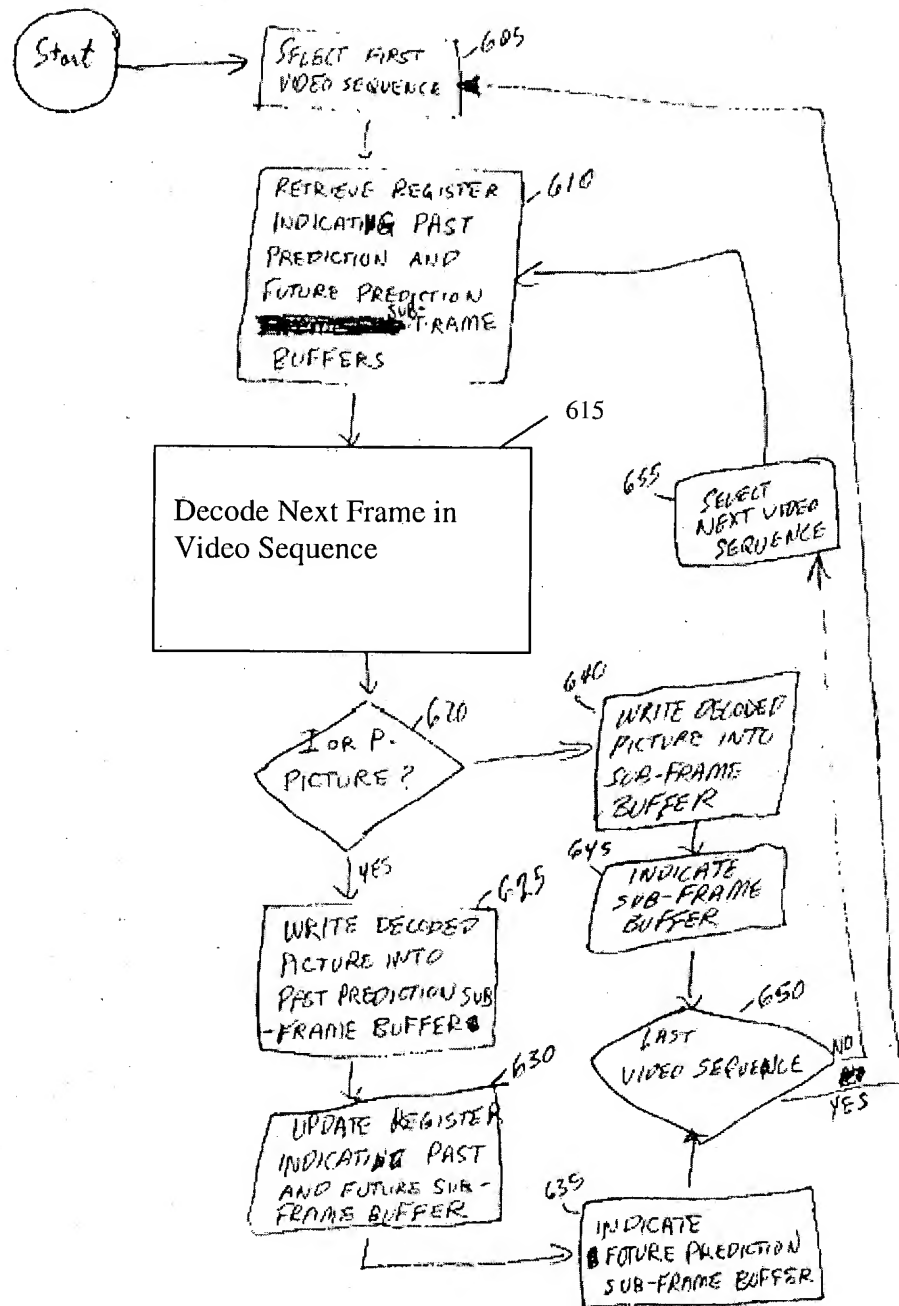 Start
605
SELECT FIRST
VIDEO SEQUENCE
610
RETRIEVE REGISTER
INDICATING PAST
PREDICTION AND
FUTURE PREDICTION
SUB-
FRAME
BUFFERS
615
Decode Next Frame in
Video Sequence
655
SELECT
NEXT VIDEO
SEQUENCE
620
I OR P-
PICTURE?
640
WRITE DECODED
PICTURE INTO
SUB-FRAME
BUFFER
645
INDICATE
SUB-FRAME
BUFFER
YES
625
WRITE DECODED
PICTURE INTO
PAST PREDICTION SUB
-FRAME BUFFER
650
LAST
VIDEO SEQUENCE
NO
YES
630
UPDATE REGISTER
INDICATING PAST
AND FUTURE SUB-
FRAME BUFFER
635
INDICATE
FUTURE PREDICTION
SUB-FRAME BUFFER